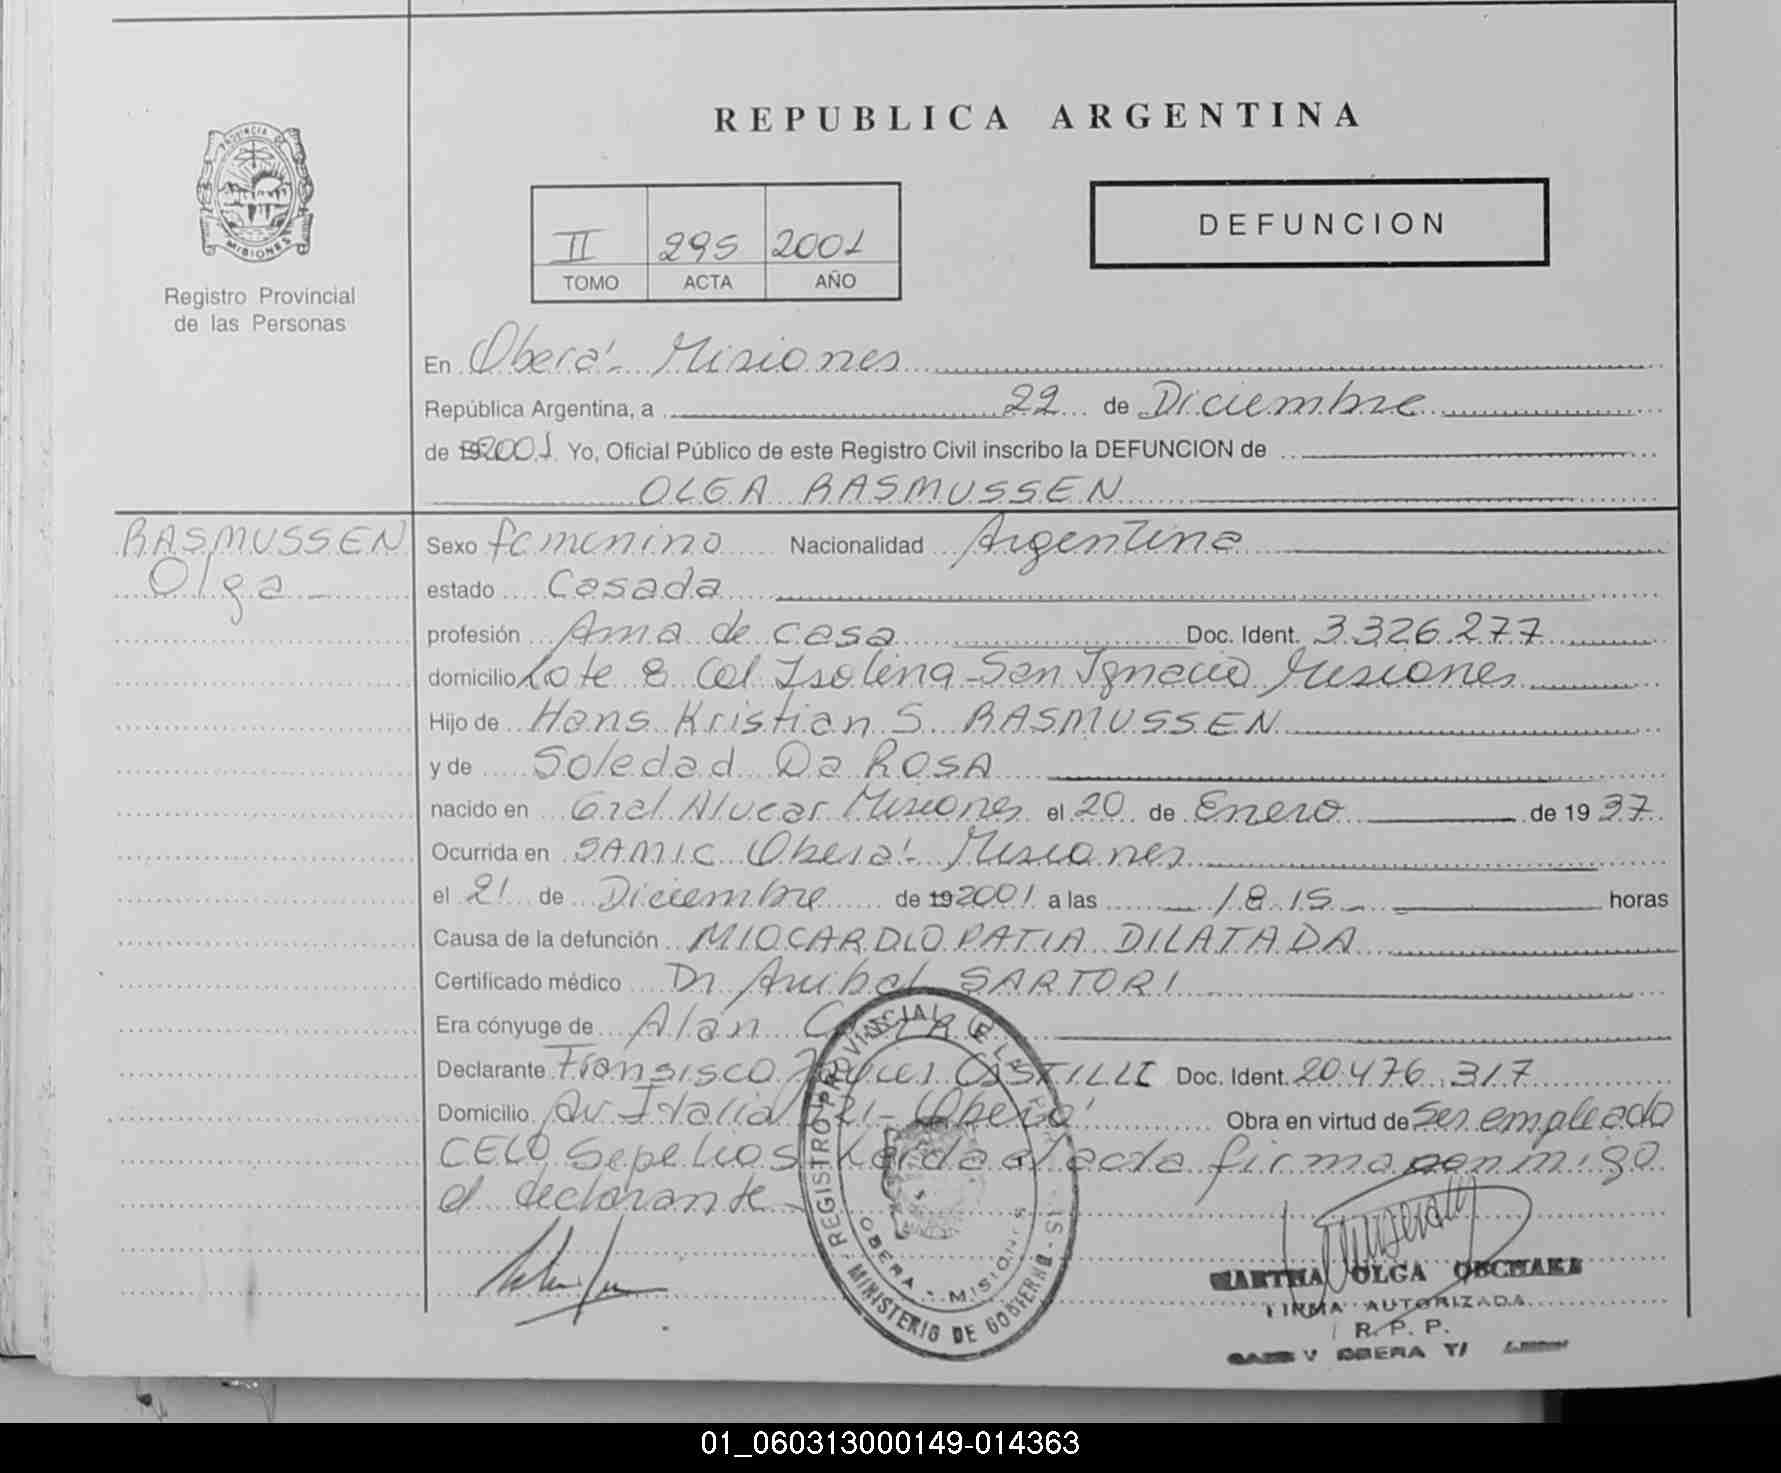 REPUBLICA ARGENTINA
PROVINCIA DE
MISIONES
Registro Provincial
de las Personas
II 295 2001
TOMO ACTA AÑO
DEFUNCION
En Oberá - Misiones
República Argentina, a 22 de Diciembre
de 19 2001 Yo, Oficial Público de este Registro Civil inscribo la DEFUNCION de
OLGA RASMUSSEN
RASMUSSEN
Olga -
Sexo femenino Nacionalidad Argentina
estado Casada
profesión Ama de casa Doc. Ident. 3.326.277
domicilio Lote 8 Col Isolina - San Ignacio Misiones
Hijo de Hans Kristian S. RASMUSSEN
y de Soledad Da ROSA
nacido en Gral Alvear Misiones el 20 de Enero de 19 37
Ocurrida en SAMIC Oberá - Misiones
el 21 de Diciembre de 19 2001 a las - 18.15 - horas
Causa de la defunción MIOCARDIOPATIA DILATADA
Certificado médico Dr Anibal SARTORI
Era cónyuge de Alan
Declarante Fransisco CASTILLI Doc. Ident. 20.476.317
Domicilio Av. Italia 21 - Oberá Obra en virtud de ser empleado
CELO Sepelios Leida el acta firma conmigo
el declarante
REGISTRO PROVINCIAL DE LAS
OBERA - MISIONES
MINISTERIO DE GOBIERNO
MARTHA OLGA
FIRMA AUTORIZADA
R. P. P.
OBERA
01_060313000149-014363